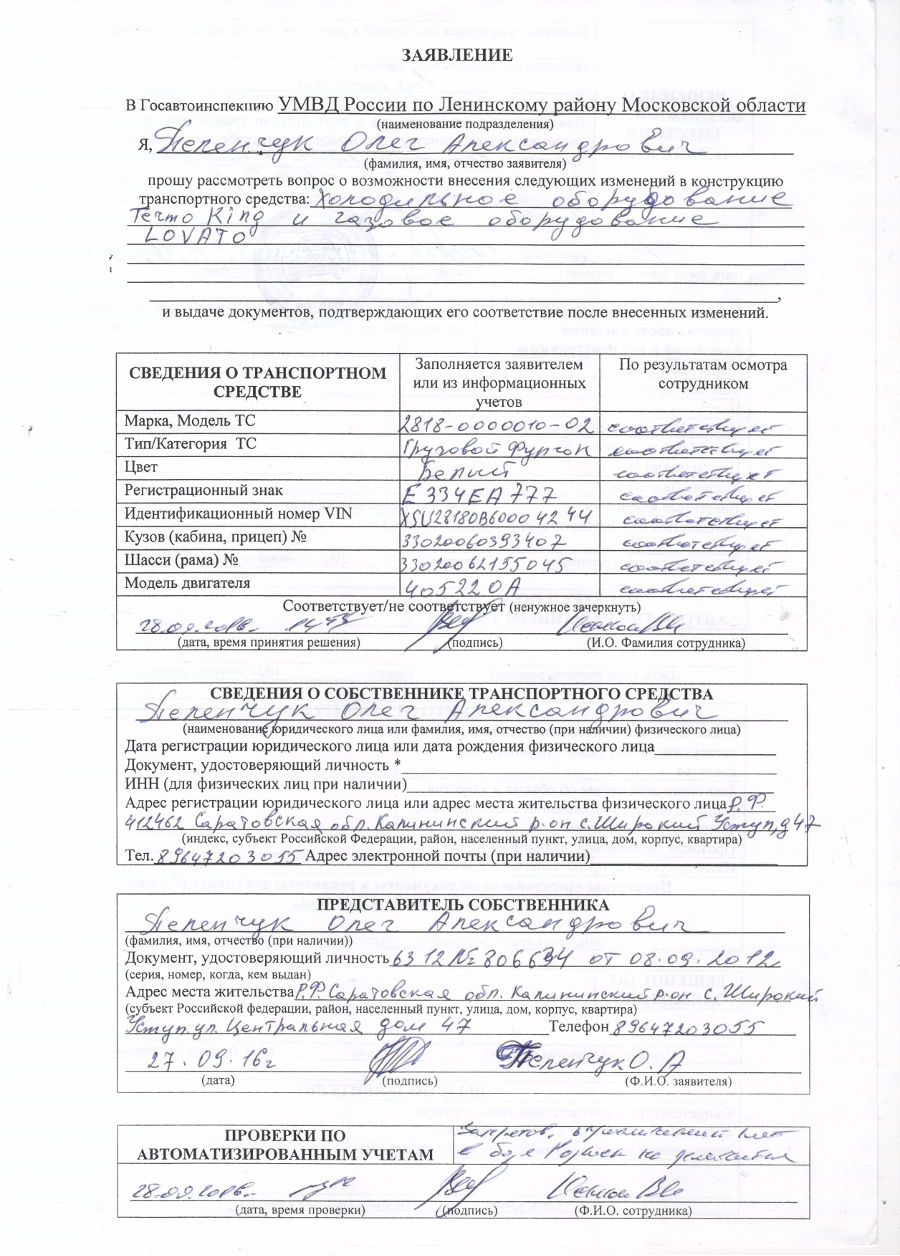 ЗАЯВЛЕНИЕ
В Госавтоинспекцию УМВД России по Ленинскому району Московской области
(наименование подразделения)
Я, Пеленчук Олег Александрович
(фамилия, имя, отчество заявителя)
прошу рассмотреть вопрос о возможности внесения следующих изменений в конструкцию
транспортного средства: Холодильное оборудование
Termo King и газовое оборудование
LOVATO
и выдаче документов, подтверждающих его соответствие после внесенных изменений.
СВЕДЕНИЯ О ТРАНСПОРТНОМ СРЕДСТВЕ Заполняется заявителем или из информационных учетов По результатам осмотра сотрудником
Марка, Модель ТС 2818-0000010-02 соответствует
Тип/Категория ТС Грузовой Фургон соответствует
Цвет Белый соответствует
Регистрационный знак Е334ЕА777 соответствует
Идентификационный номер VIN X5U28180B60004244 соответствует
Кузов (кабина, прицеп) № 33020060393407 соответствует
Шасси (рама) № 33020062155045 соответствует
Модель двигателя 405220А соответствует
Соответствует/не соответствует (ненужное зачеркнуть)
28.09.2016
(дата, время принятия решения) (подпись) (И.О. Фамилия сотрудника)
СВЕДЕНИЯ О СОБСТВЕННИКЕ ТРАНСПОРТНОГО СРЕДСТВА
Пеленчук Олег Александрович
(наименование юридического лица или фамилия, имя, отчество (при наличии) физического лица)
Дата регистрации юридического лица или дата рождения физического лица
Документ, удостоверяющий личность *
ИНН (для физических лиц при наличии)
Адрес регистрации юридического лица или адрес места жительства физического лица Р.Ф.
412462 Саратовская обл. Калининский р-он с. Широкий Уступ, д 47
(индекс, субъект Российской Федерации, район, населенный пункт, улица, дом, корпус, квартира)
Тел. 89647203055 Адрес электронной почты (при наличии)
ПРЕДСТАВИТЕЛЬ СОБСТВЕННИКА
Пеленчук Олег Александрович
(фамилия, имя, отчество (при наличии))
Документ, удостоверяющий личность 6312 № 806634 от 08.09.2012
(серия, номер, когда, кем выдан)
Адрес места жительства Р.Ф. Саратовская обл. Калининский р-он с. Широкий
(субъект Российской федерации, район, населенный пункт, улица, дом, корпус, квартира)
Уступ. ул. Центральная дом 47 Телефон 89647203055
27.09.16г Пеленчук О. А
(дата) (подпись) (Ф.И.О. заявителя)
ПРОВЕРКИ ПО
АВТОМАТИЗИРОВАННЫМ УЧЕТАМ
28.09.2016
(дата, время проверки) (подпись) (Ф.И.О. сотрудника)